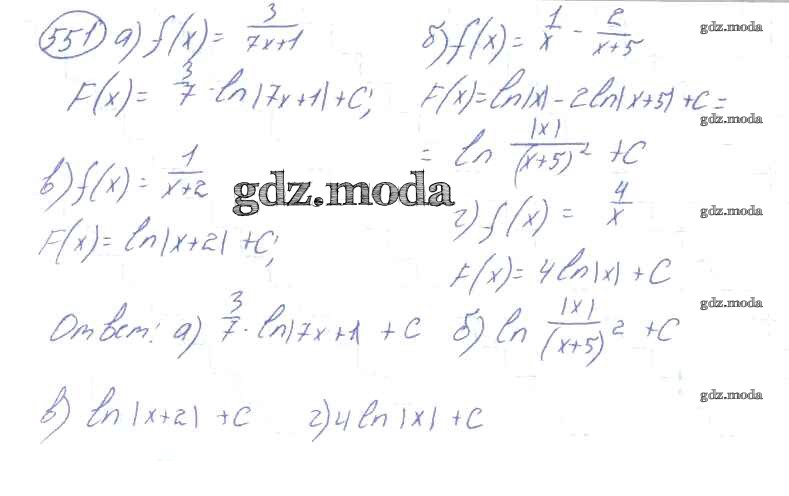 551 а) f(x) = 3/(7x+1)
F(x) = 3/7 · ln|7x+1| + C;
б) f(x) = 1/x - 2/(x+5)
F(x) = ln|x| - 2ln|x+5| + C =
= ln |x|/(x+5)² + C
в) f(x) = 1/(x+2)
F(x) = ln|x+2| + C;
г) f(x) = 4/x
F(x) = 4ln|x| + C
Ответ: а) 3/7 · ln|7x+1| + C б) ln |x|/(x+5)² + C
в) ln|x+2| + C г) 4ln|x| + C
gdz.moda
gdz.moda
gdz.moda
gdz.moda
gdz.moda
gdz.moda